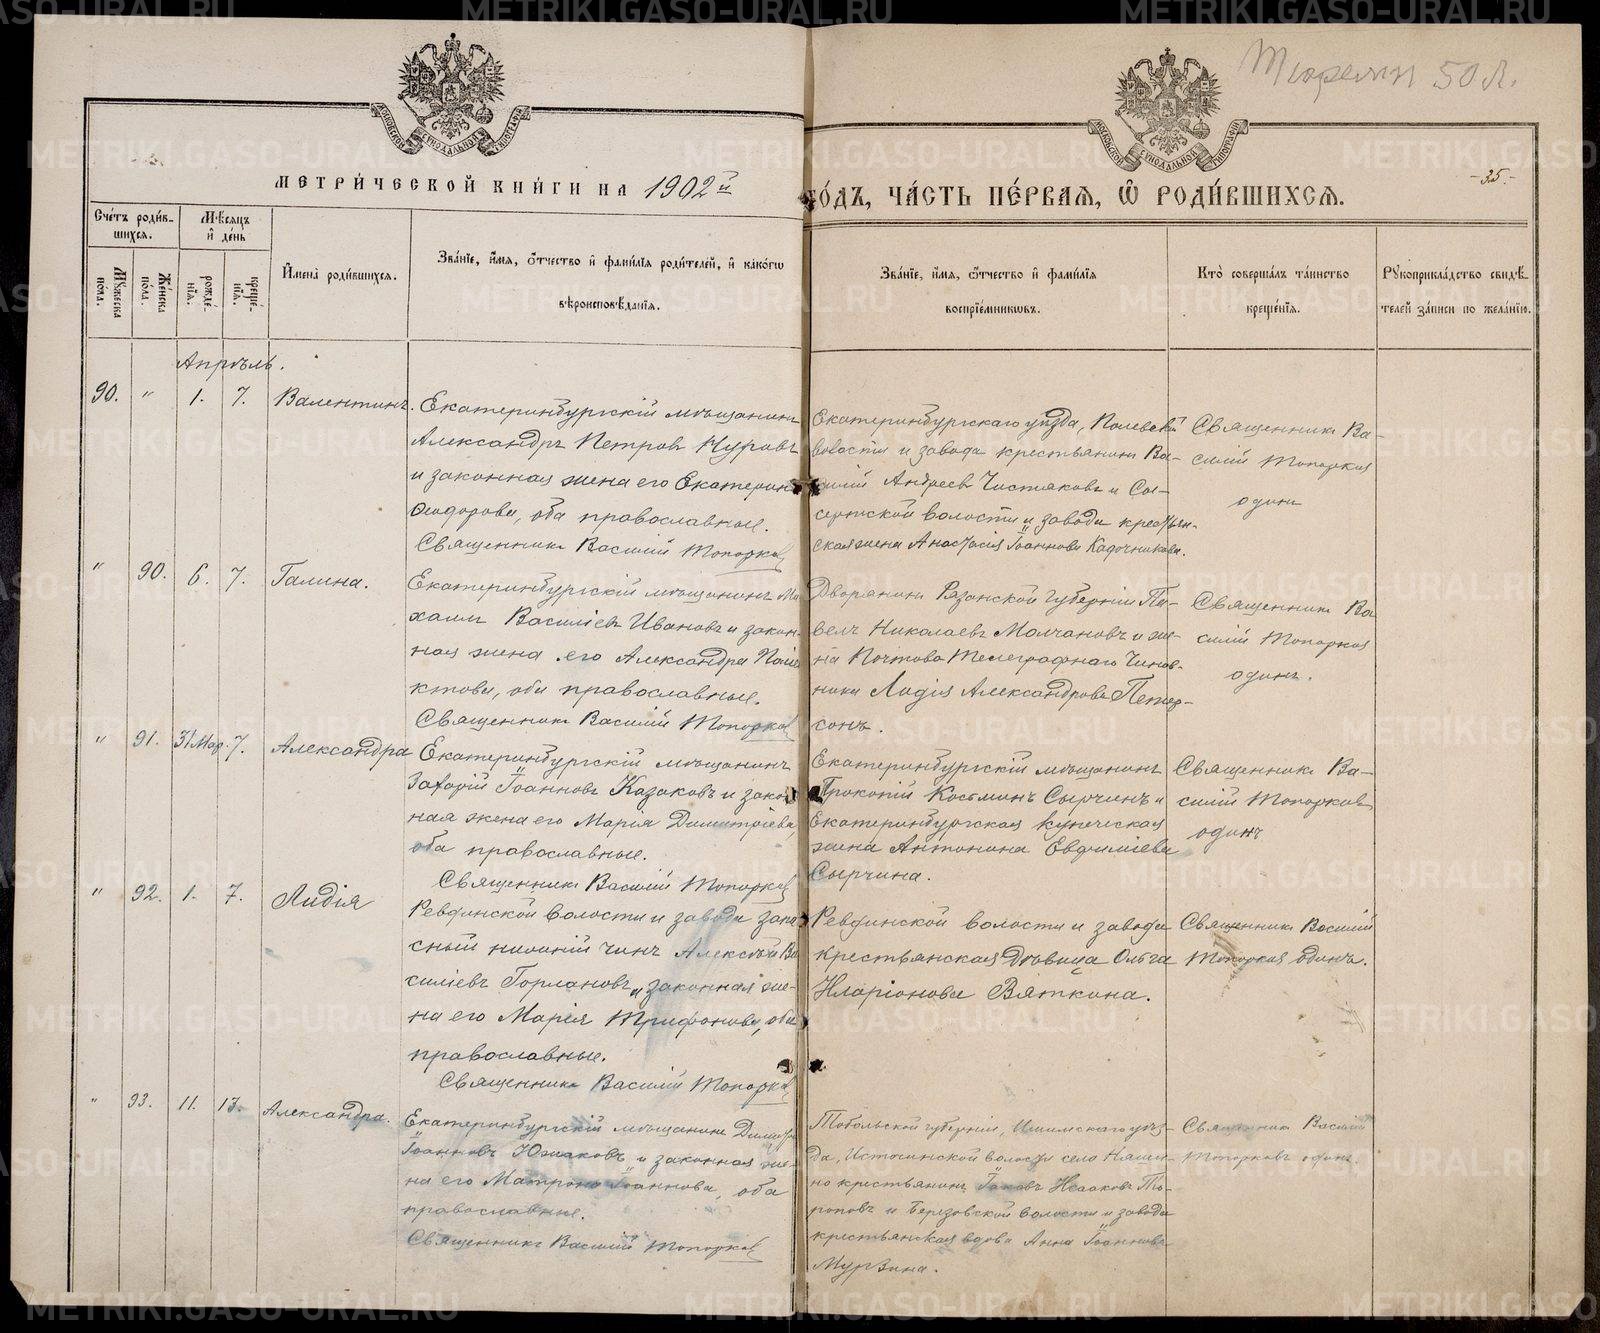 Тюремн 50 л.
МЕТРИ́ЧЕСКОЙ КНИ́ГИ НА 1902й
ГО́ДЪ, ЧА́СТЬ ПЕ́РВАЯ, Ѿ РОДИ́ВШИХСЯ.
35.
Сче́тъ роди́вшихся.
Мѣ́сяцъ и҆ де́нь
Мꙋ́жеска по́ла.
Же́нска по́ла.
рожде́нїѧ.
креще́нїѧ.
И҆мена̀ роди́вшихся.
Зва́нїе, и҆́мѧ, ѻ҆́тчество и҆ фами́лїѧ роди́телей, и҆ како́гѡ
вѣроисповѣ́данїѧ.
Зва́нїе, и҆́мѧ, ѻ҆́тчество и҆ фами́лїѧ
воспрїе́мникѡвъ.
Кто̀ соверша́лъ та́инство
креще́нїѧ.
Рꙋкоприкла́дство свидѣ́
телей за́писи по жела́нїю.
Апрѣль.
90. " 1. 7. Валентинъ.
Екатеринбургскій мѣщанинъ
Александръ Петровъ Нуровъ
и законная жена его Екатерина
Ѳеодорова, оба православные.
Священникъ Василій Топорковъ
Екатеринбургскаго уѣзда, Полевской
волости и завода крестьянинъ Ва-
силій Андреевъ Чистяковъ и Сы-
сертской волости и завода крестьян-
ская жена Анастасія Іоаннова Кадочникова.
Священникъ Ва-
силій Топорковъ
одинъ
" 90. 6. 7. Галина.
Екатеринбургскій мѣщанинъ Ми
хаилъ Василіевъ Ивановъ и закон-
ная жена его Александра Поли
ктова, оба православные.
Священникъ Василій Топорковъ
Дворянинъ Рязанской губерніи Па-
велъ Николаевъ Молчановъ и же-
на Почтово Телеграфнаго Чинов-
ника Лидія Александрова Петер-
сонъ.
Священникъ Ва
силій Топорковъ
одинъ.
" 91. 31 Мар. 7. Александра
Екатеринбургскій мѣщанинъ
Захарій Іоанновъ Казаковъ и закон
ная жена его Марія Димитріева,
оба православные.
Священникъ Василій Топорковъ
Екатеринбургскій мѣщанинъ
Прокопій Косьминъ Сырчинъ и
Екатеринбургская купеческая
жена Антонина Евфиміева
Сырчина.
Священникъ Ва-
силій Топорковъ
одинъ
" 92. 1. 7. Лидія
Ревдинской волости и завода запа
сный нижній чинъ Алексѣй Ва
силіевъ Горлановъ и законная же-
на его Марія Трифонова, оба
православные.
Священникъ Василій Топорковъ
Ревдинской волости и завода
крестьянская дѣвица Ольга
Иларіонова Вяткина.
Священникъ Василій
Топорковъ одинъ.
" 93. 11. 13. Александра.
Екатеринбургскій мѣщанинъ Димитрій
Іоанновъ Южаковъ и законная же-
на его Матрона Іоаннова, оба
православные.
Священникъ Василій Топорковъ
Тобольской губерніи, Ишимскаго уѣз-
да, Истошинской волости села
крестьянинъ Іаковъ Исааковъ То-
роповъ и Березовской волости и завода
крестьянская вдова Анна Іоаннова
Мурзина.
Священникъ Василій
Топорковъ одинъ.
METRIKI.GASO-URAL.RU